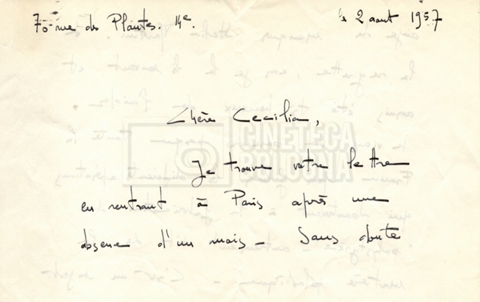 70 rue des Plantes. 14e.
le 2 aout 1957
Chère Cecilia,
CINETECA
BOLOGNA
Je trouve votre lettre
en rentrant à Paris après une
absence d'un mois - Sans doute